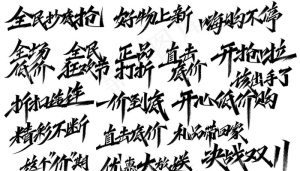 全民抄底抢 好物上新 嗨购不停
全场低价 全民狂欢节 正品打折 直击底价 开抢啦 该出手了
折扣连连 一价到底 开心低价购
精彩不断 直击底价 礼品带回家
整个“价”期 优惠大放送 决战双11